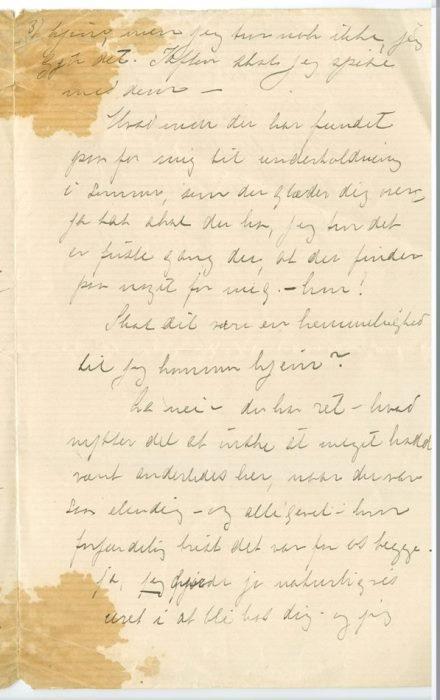 3) hjem, men jeg tror nok ikke, jeg
det. I aften skal jeg spise
med dem —
Hvad mon du har fundet
paa for mig til underholdning
i sommer, som du glæder dig over,
ja tak skal du ha, jeg tror det
er første gang du, at du finder
paa noget for mig. – hm!
Skal dit være en hemmelighed
til jeg kommer hjem?
Aa nei – du har ret – hvad
nytter det at ønske at meget hadde
vært anderledes her, naar du var
saa elendig – og alligevel – hvor
forfærdelig trist det var for os begge.
ja, jeg gjorde jo naturligvis
uret i at bli hos dig – og jeg